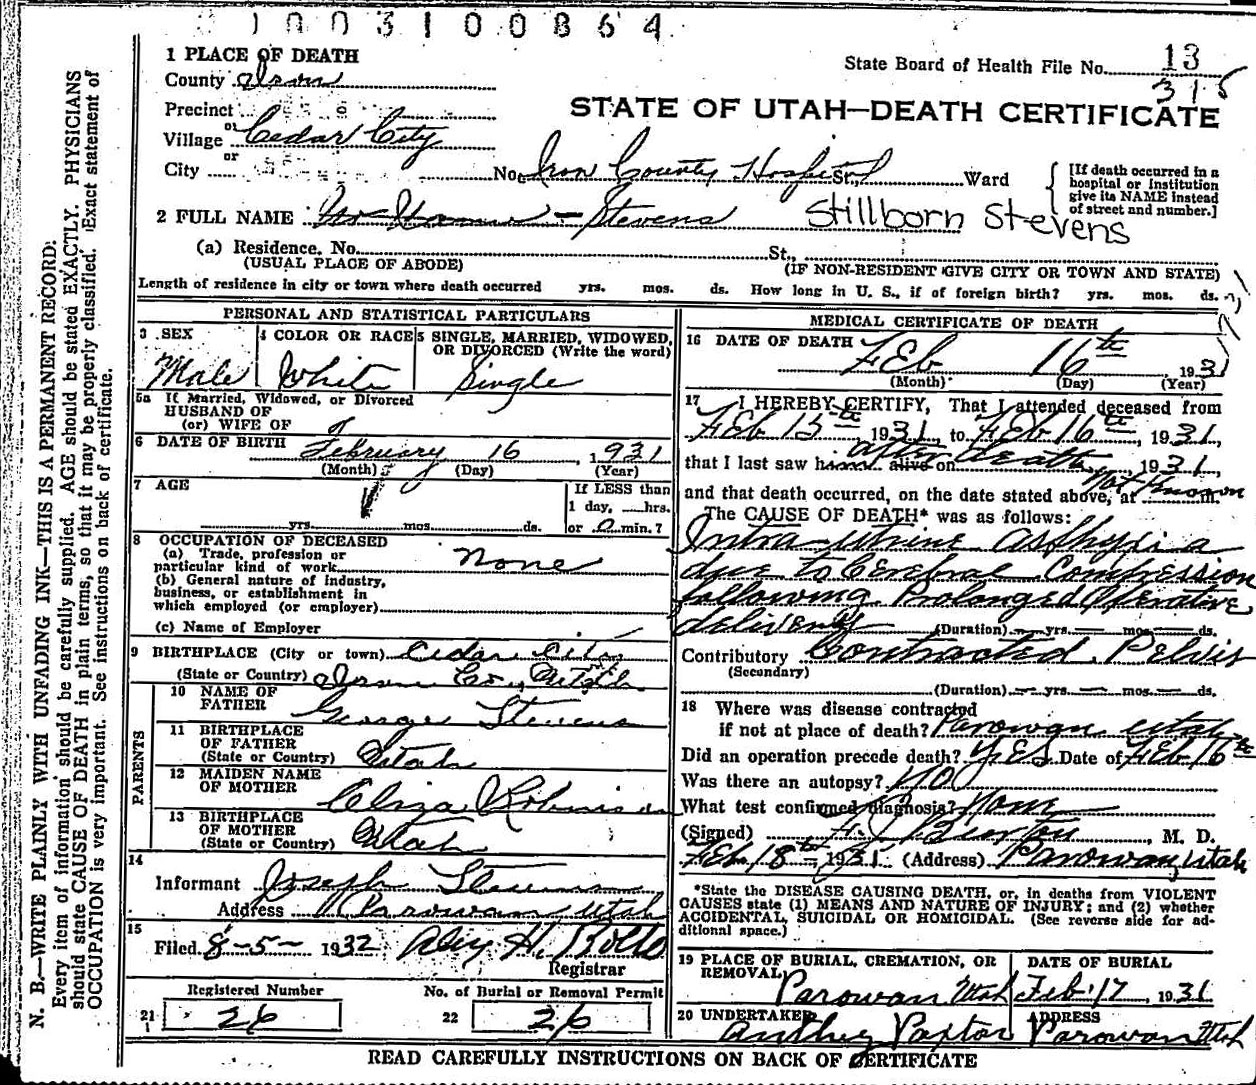 1003100864
1 PLACE OF DEATH
State Board of Health File No. 13
315
County Iron
STATE OF UTAH—DEATH CERTIFICATE
Precinct
Village or Cedar City
City or No. Iron County Hospital St., Ward
[If death occurred in a hospital or institution give its NAME instead of street and number.]
2 FULL NAME No Name — Stevens Stillborn Stevens
(a) Residence. No. St.,
(USUAL PLACE OF ABODE) (IF NON-RESIDENT GIVE CITY OR TOWN AND STATE)
Length of residence in city or town where death occurred yrs. mos. ds. How long in U. S., if of foreign birth? yrs. mos. ds.
PERSONAL AND STATISTICAL PARTICULARS
3 SEX
Male
4 COLOR OR RACE
White
5 SINGLE, MARRIED, WIDOWED, OR DIVORCED (Write the word)
Single
5a If Married, Widowed, or Divorced
HUSBAND OF
(or) WIFE OF
6 DATE OF BIRTH February 16 1931
(Month) (Day) (Year)
7 AGE
yrs. mos. ds.
If LESS than
1 day, hrs.
or 0 min.?
8 OCCUPATION OF DECEASED
(a) Trade, profession or
particular kind of work None
(b) General nature of industry,
business, or establishment in
which employed (or employer)
(c) Name of Employer
9 BIRTHPLACE (City or town) Cedar City
(State or Country) Iron Co., Utah
PARENTS
10 NAME OF
FATHER George Stevens
11 BIRTHPLACE
OF FATHER
(State or Country) Utah
12 MAIDEN NAME
OF MOTHER Eliza Robinson
13 BIRTHPLACE
OF MOTHER
(State or Country) Utah
14
Informant Joseph Stevens
Address Parowan Utah
15
Filed 8-5- 1932
Registrar
Registered Number
21 26
No. of Burial or Removal Permit
22 26
MEDICAL CERTIFICATE OF DEATH
16 DATE OF DEATH Feb 16th 1931
(Month) (Day) (Year)
17 I HEREBY CERTIFY, That I attended deceased from
Feb 15th 1931, to Feb 16th, 1931,
that I last saw him alive on after death, 1931,
and that death occurred, on the date stated above, at Not Known m.
The CAUSE OF DEATH* was as follows:
Intra uterine asthyxia
due to Cerebral Compression
following Prolonged Operative
delivery (Duration) yrs. mos. ds.
Contributory Contracted Pelvis
(Secondary)
(Duration) yrs. mos. ds.
18 Where was disease contracted
if not at place of death? Parowan Utah
Did an operation precede death? Yes Date of Feb 16th
Was there an autopsy? No
What test confirmed diagnosis? None
(Signed) Burton, M. D.
Feb 18th 1931 (Address) Parowan, Utah
*State the DISEASE CAUSING DEATH, or, in deaths from VIOLENT
CAUSES state (1) MEANS AND NATURE OF INJURY; and (2) whether
ACCIDENTAL, SUICIDAL OR HOMICIDAL. (See reverse side for ad-
ditional space.)
19 PLACE OF BURIAL, CREMATION, OR
REMOVAL Parowan Utah
DATE OF BURIAL
Feb 17, 1931
20 UNDERTAKER
ADDRESS
Parowan Utah
READ CAREFULLY INSTRUCTIONS ON BACK OF CERTIFICATE
N. B.—WRITE PLAINLY WITH UNFADING INK—THIS IS A PERMANENT RECORD:
Every item of information should be carefully supplied. AGE should be stated EXACTLY. PHYSICIANS
should state CAUSE OF DEATH in plain terms, so that it may be properly classified. Exact statement of
OCCUPATION is very important. See instructions on back of certificate.